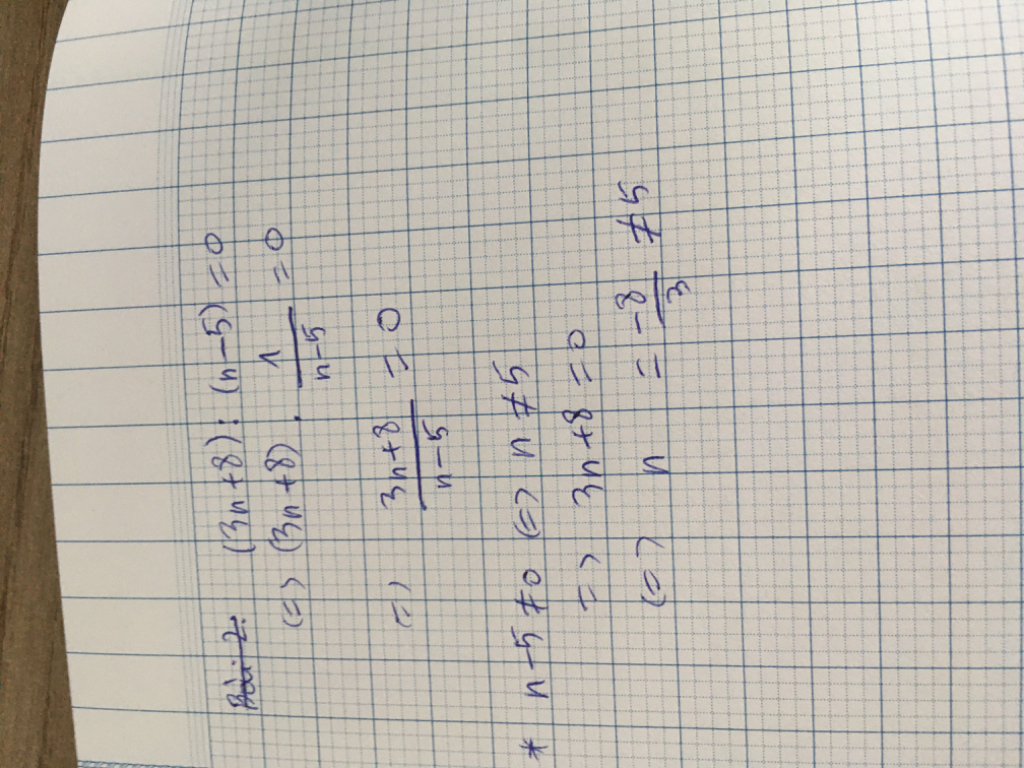 Bài 2. (3n+8) : (n-5) = 0
(=) (3n+8) . 1/(n-5) = 0
=) (3n+8)/(n-5) = 0
* n-5 ≠ 0 (=) n ≠ 5
=) 3n+8 = 0
(=) n = -8/3 ≠ 5